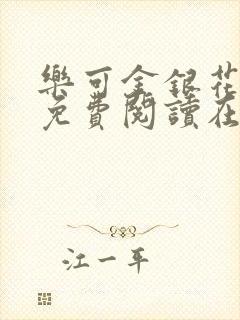 樂可金銀花
免費閱讀在
江一平